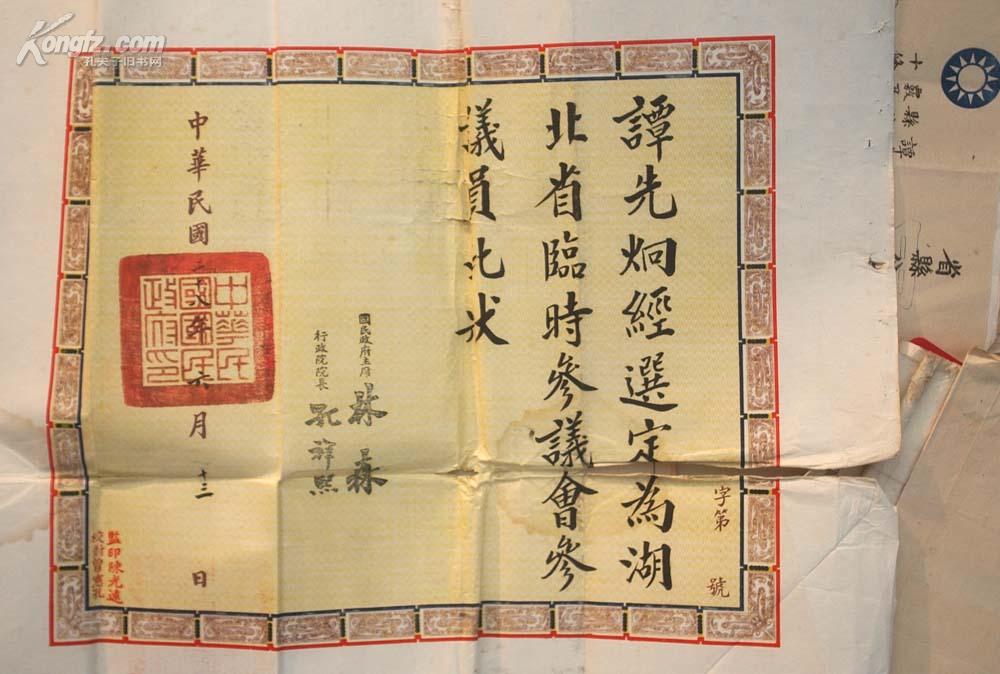 譚先炯經選定為湖
北省臨時參議會參
議員此狀
國民政府主席 林森
行政院院長 孔祥熙
中華民國二十八年六月十三日
中華民國國民政府印
字第 號
監印陳光遠
校對
Kongfz.com
孔夫子旧书网
縣譚
省縣